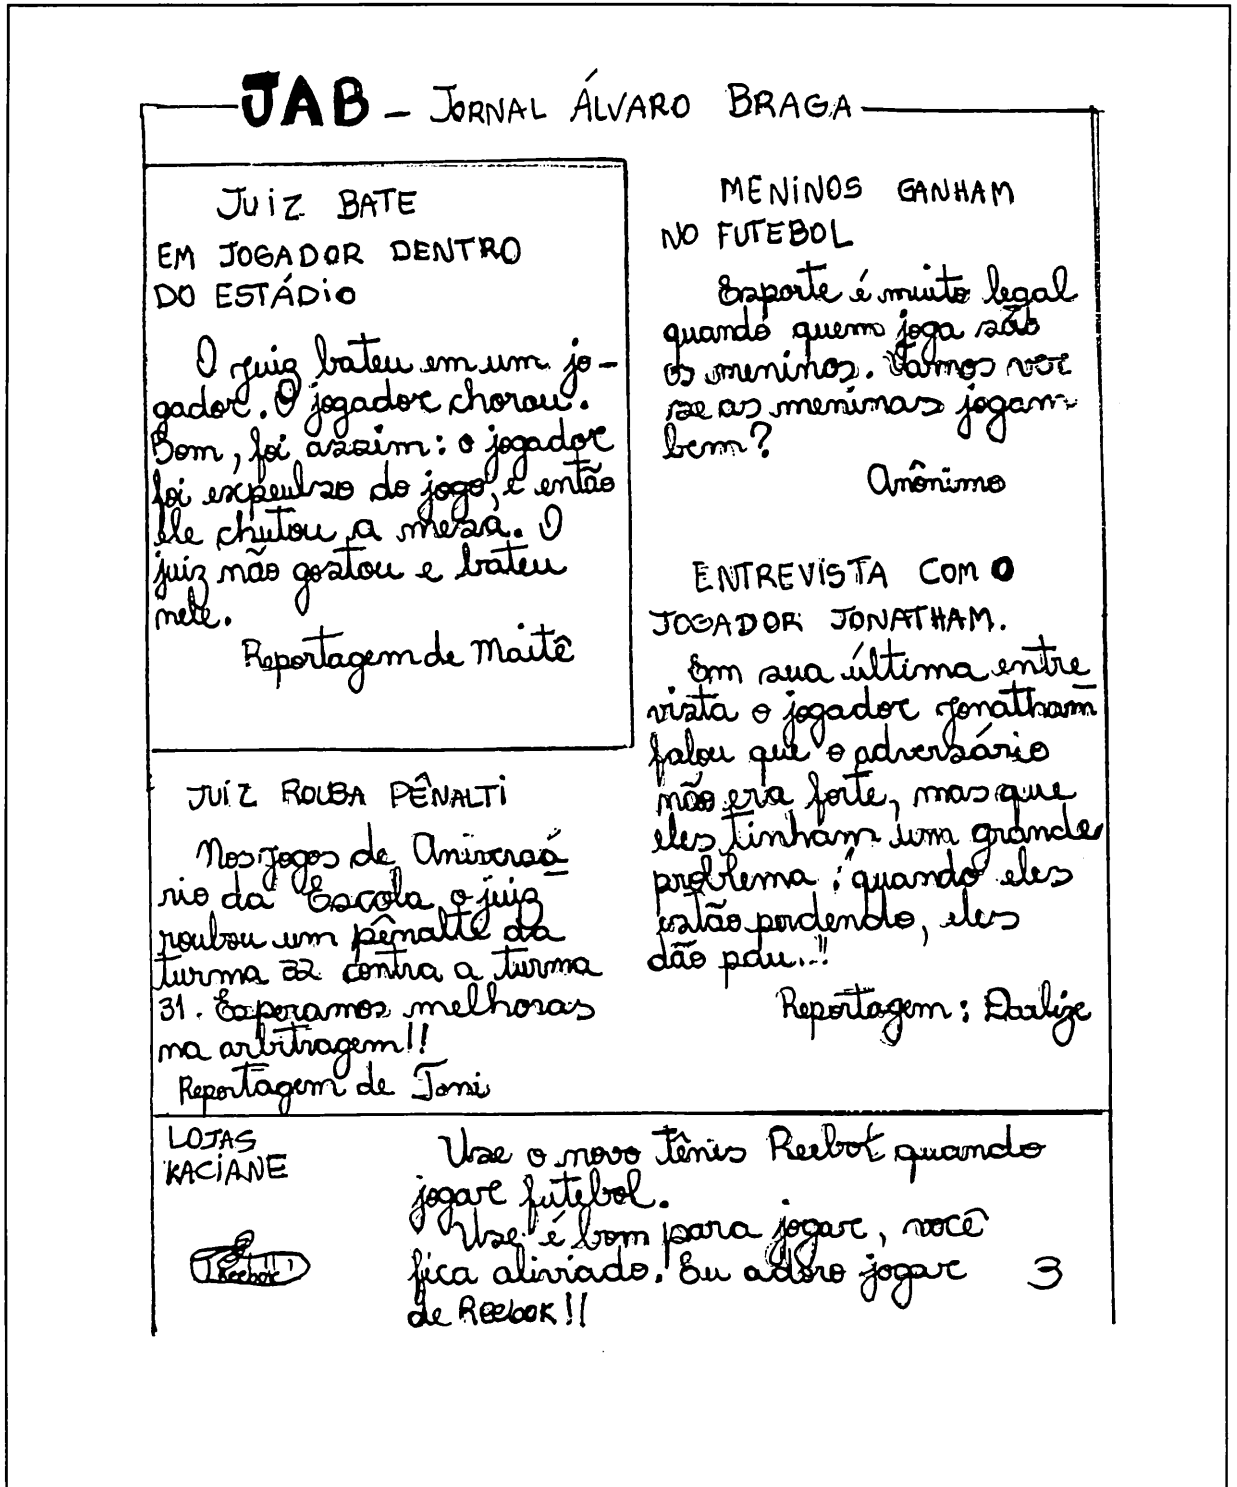 JAB - JORNAL ÁLVARO BRAGA
JUIZ BATE
EM JOGADOR DENTRO
DO ESTÁDIO
O juiz bateu em um jo-
gador. O jogador chorou.
Bom, foi assim: o jogador
foi expeulso do jogo, e então
ele chutou a mesa. O
juiz não gostou e bateu
nele.
Reportagem de Maitê
JUIZ ROUBA PÊNALTI
Nos jogos de Aniversá
rio da Escola o juiz
roubou um pênalte da
turma 32 contra a turma
31. Esperamos melhoras
na arbitragem!!
Reportagem de Toni
MENINOS GANHAM
NO FUTEBOL
Esporte é muito legal
quando quem joga são
os meninos. Vamos ver
se as meninas jogam
bem?
Anônimo
ENTREVISTA COM O
JOGADOR JONATHAM.
Em sua última entre
vista o jogador Jonatham
falou que o adversário
não era forte, mas que
eles tinham um grande
problema: quando eles
estão perdendo, eles
dão pau..!!
Reportagem: Darlize
LOJAS
KACIANE
Reebok
Use o novo Tênis Reebok quando
jogar futebol.
Use é bom para jogar, você
fica aliviado. Eu adoro jogar
de Reebok!!
3